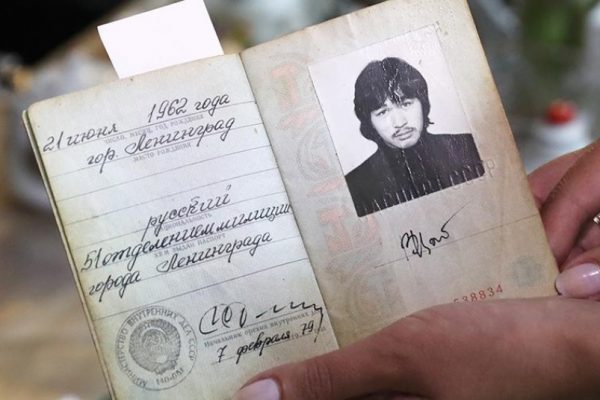 21 июня 1962 года
число, месяц, год рождения
гор. Ленинград
место рождения
русский
национальность
51 отделением милиции
кем выдан паспорт
города Ленинграда
Начальник органа внутренних дел
7 февраля 1979
МИНИСТЕРСТВО ВНУТРЕННИХ ДЕЛ СССР
538834